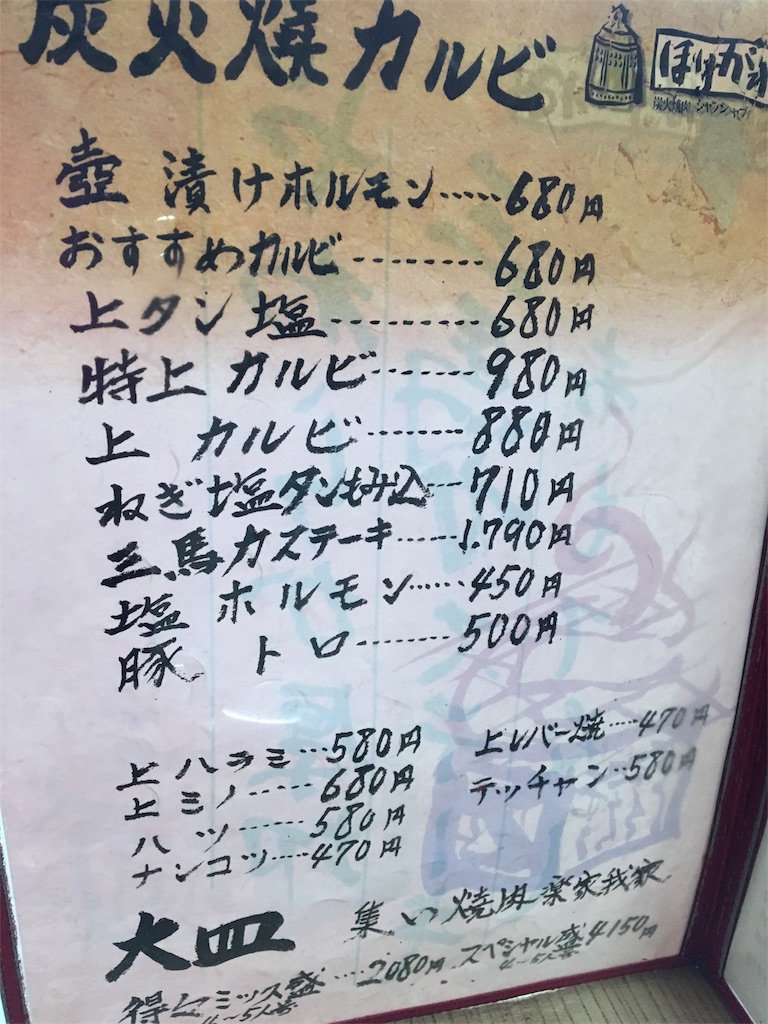 炭火焼カルビ
ほけが
炭火焼肉 シャブシャブ
壺漬けホルモン……680円
おすすめカルビ--------680円
上タン塩--------680円
特上カルビ-------980円
上カルビ-------880円
ねぎ塩タンもみ込--710円
三馬力ステーキ-----1.790円
塩ホルモン……450円
豚トロ-------500円
上ハラミ…580円
上ミノ-----680円
ハツ-----580円
ナンコツ----470円
上レバー焼----470円
テッチャン--580円
大皿
集い焼肉楽家我家
得々ミックス盛----2080円
4〜5人前
スペシャル盛4150円
4〜5人前